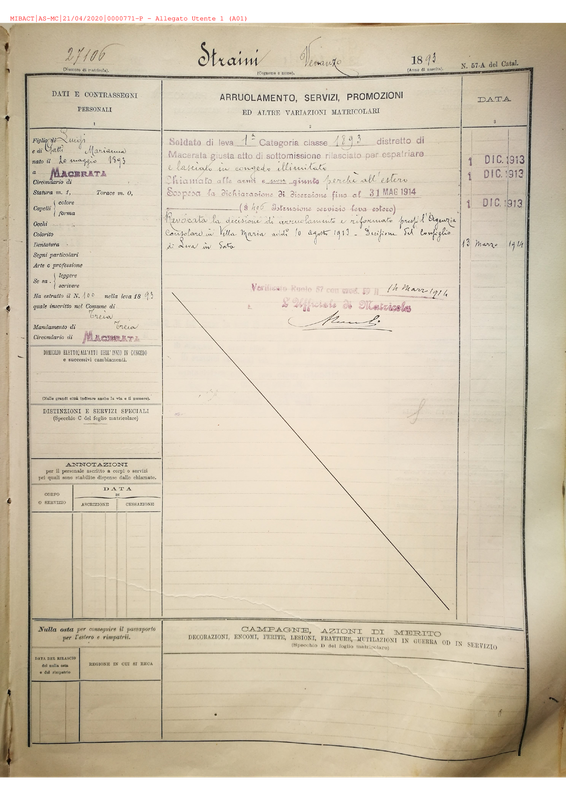 MIBACT|AS-MC|21/04/2020|0000771-P - Allegato Utente 1 (A01)
27106
(Numero di matricola)
Straini Venanzo
(Cognome e nome)
1893
(Anno di nascita)
N. 57-A del Catal.
DATI E CONTRASSEGNI
PERSONALI
1
Figlio di Luigi
e di Marianna
nato il 20 maggio 1893
a MACERATA
Circondario di
Statura m. 1, Torace m. 0,
Capelli colore
forma
Occhi
Colorito
Dentatura
Segni particolari
Arte o professione
Se sa leggere
scrivere
Ha estratto il N. 101 nella leva 1893
quale inscritto nel Comune di
Treia
Mandamento di Treia
Circondario di MACERATA
DOMICILIO ELETTO ALL'ATTO DELL'INVIO IN CONGEDO
e successivi cambiamenti.
(Nelle grandi città indicare anche la via e il numero).
DISTINZIONI E SERVIZI SPECIALI
(Specchio C del foglio matricolare)
ANNOTAZIONI
per il personale ascritto a corpi o servizi
pei quali sono stabilite dispense dalle chiamate.
CORPO
O SERVIZIO
DATA
DI
ASCRIZIONE
CESSAZIONE
Nulla osta per conseguire il passaporto
per l'estero e rimpatrii.
DATA DEL RILASCIO
del nulla osta
e del rimpatrio
REGIONE IN CUI SI RECA
ARRUOLAMENTO, SERVIZI, PROMOZIONI
ED ALTRE VARIAZIONI MATRICOLARI
2
Soldato di leva 1ª Categoria classe 1893 distretto di
Macerata giusta atto di sottomissione rilasciato per espatriare
e lasciato in congedo illimitato
Chiamato alle armi e non giunto perchè all'estero
Sospesa la dichiarazione di diserzione fino al 31 MAG 1914
(§ 496 Istruzione servizio leva estero)
Revocata la decisione di arruolamento e riformato presso l'Agenzia
Consolare in Villa Maria addì 10 agosto 1913 - Decisione del Consiglio
di Leva in data
14 Marzo 1914
L'Ufficiale di Matricola
DATA
3
1 DIC. 1913
1 DIC. 1913
1 DIC. 1913
13 Marzo 1914
CAMPAGNE, AZIONI DI MERITO
DECORAZIONI, ENCOMI, FERITE, LESIONI, FRATTURE, MUTILAZIONI IN GUERRA OD IN SERVIZIO
(Specchio D del foglio matricolare)